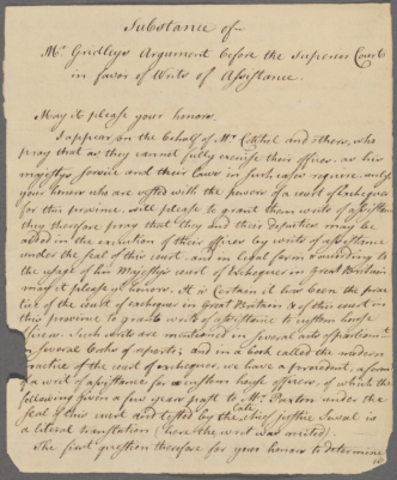 Substance of
Mr. Gridley's Argument before the Superior Court
in favor of Writs of Assistance.
May it please your honors,
I appear on the behalf of Mr. Cokhel and others, who
pray that as they cannot fully exercise their offices, as his
majestys service and their laws in such cases require, unless
your honors who are vested with the power of a court of exchequer
for this province will please to grant them writs of assistance
they therefore pray that they and their deputies may be
aided in the execution of their offices by writs of assistance
under the seal of this court and in legal form according to
the usage of his Majestys court of Exchequer in Great Britain
may it please yr. honors. It is certain it has been the prac
tice of the court of exchequer in Great Britain & of this court in
this province to grant writs of assistance to custom house
officers. Such writs are mentioned in several acts of parliament
in several books of reports; and in a book called the modern
practice of the court of exchequer, we have a precedent, a form
of a writ of assistance for custom house officers, of which the
following given a few years past to Mr. Paxton under the
seal of this court and tested by the late chief justice Sewal is
a literal translation (here the writ was recited).
The first question therefore for your honors to determine
is